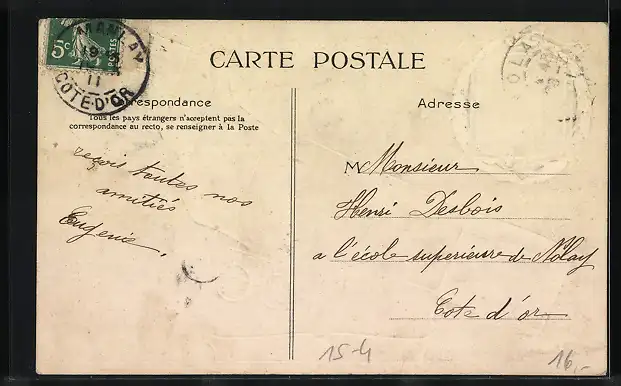 5c
POSTES
11
COTE-D'OR
CARTE POSTALE
Correspondance
Tous les pays étrangers n'acceptent pas la
correspondance au recto, se renseigner à la Poste
reçois toutes nos
amitiés
Eugenie.
Adresse
M Monsieur
Henri Desbois
a l'école superieure de Nolay
Cote d'or
15-4
16,-